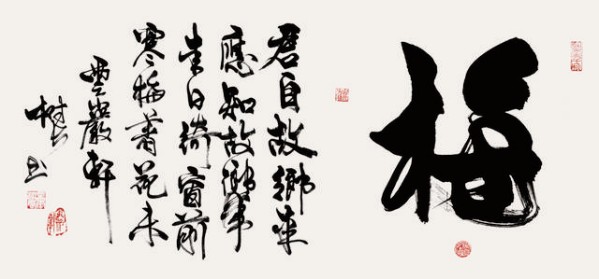 梅
君自故鄉來
應知故鄉事
來日綺窗前
寒梅著花未
巖軒